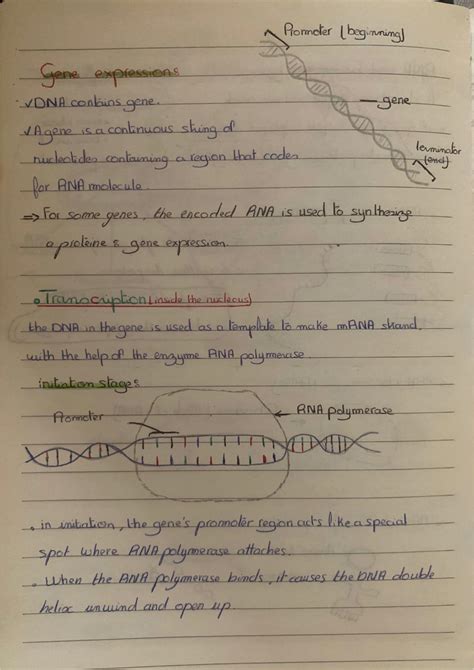 Promoter (beginning)
Gene expressions
gene
✓DNA contains gene.
✓A gene is a continuous string of
nucleotides containing a region that codes
for RNA molecule.
terminator
(end)
⇒ For some genes, the encoded RNA is used to synthesize
a proteine & gene expression.
• Transcription (inside the nucleous)
the DNA in the gene is used as a template to make mRNA strand.
with the help of the enzyme RNA polymerase.
initiation stages
Promoter
RNA polymerase
. in initiation, the gene's promoter region acts like a special
spot where RNA polymerase attaches.
. When the RNA polymerase binds, it causes the DNA double
helix unwind and open up.